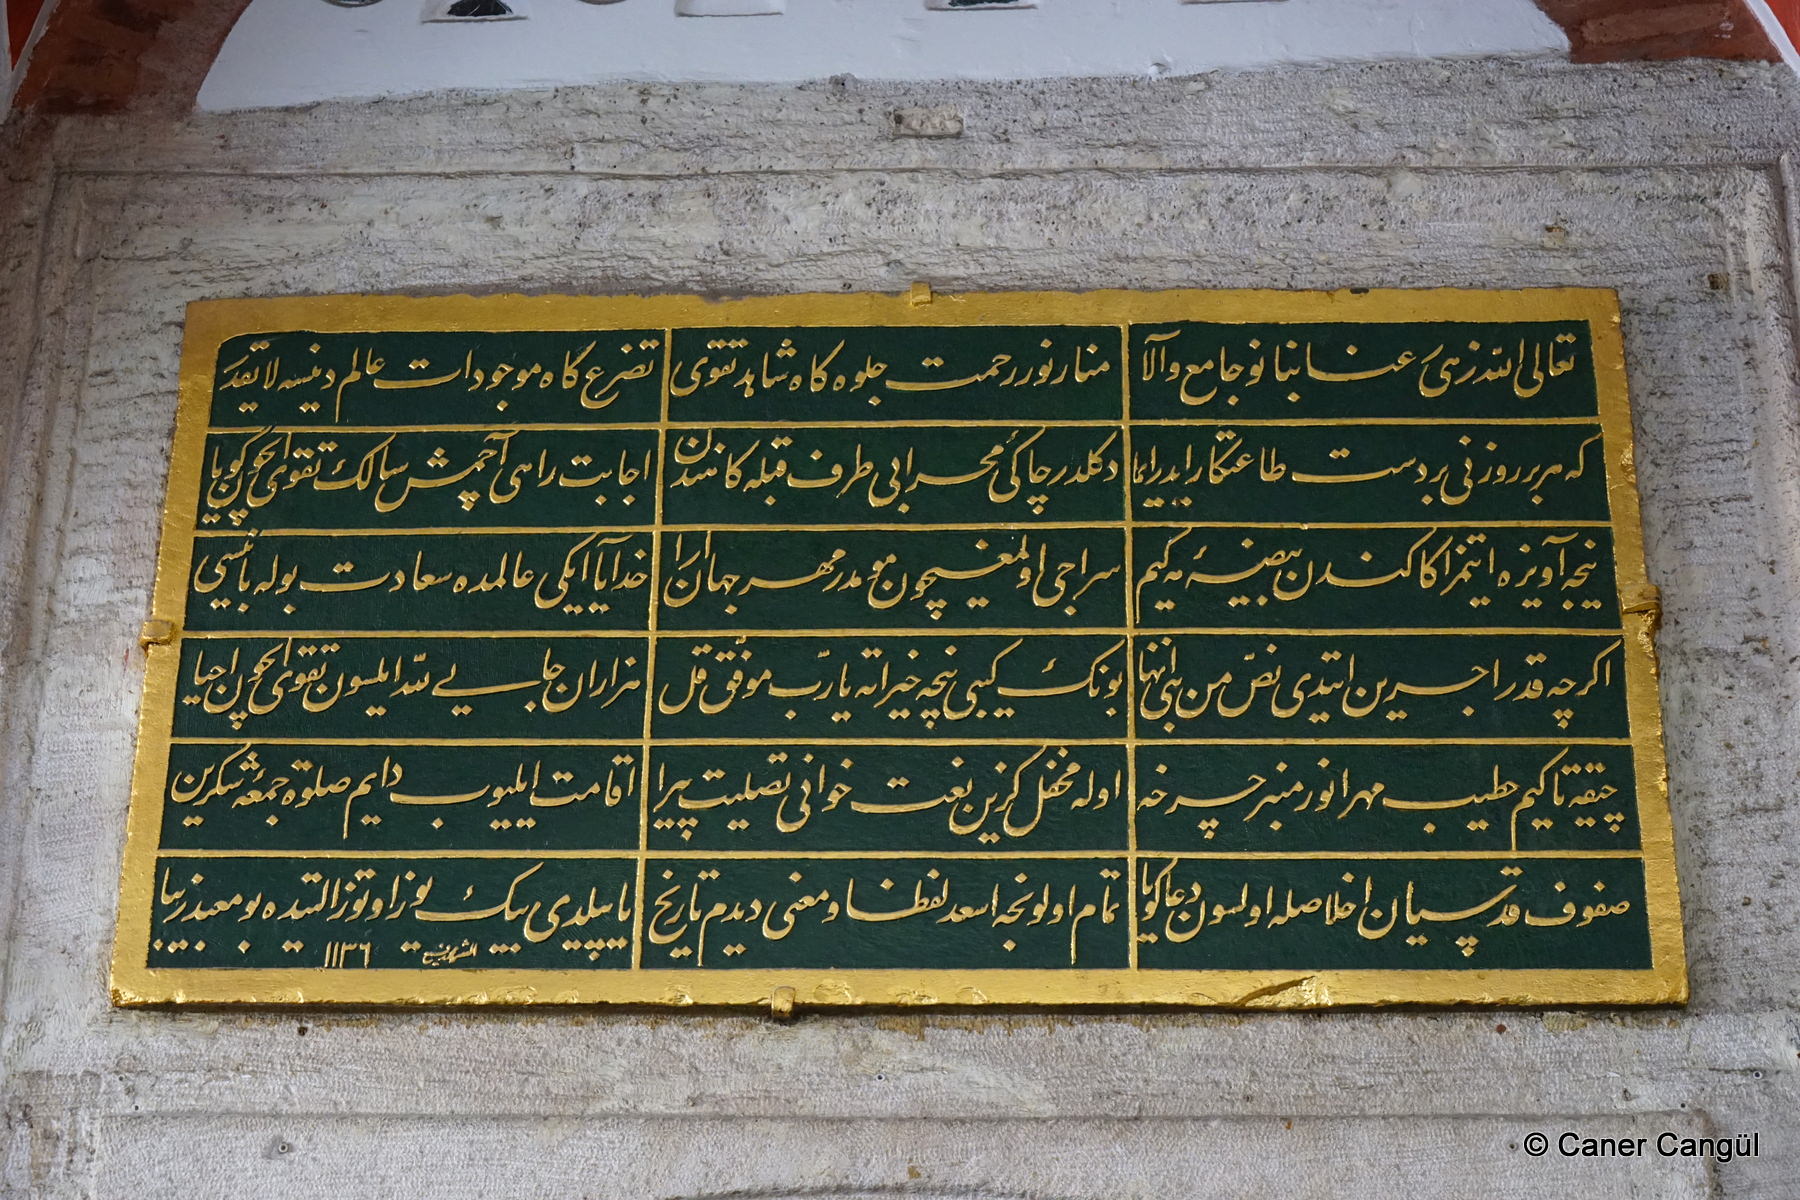 تعالی الله زهی عنا بنا نو جامع والا
منار نور رحمت جلوه كاه شاهد تقوی
تضرع كاه موجودات عالم دینسه لا یقدر
كه هر بر روزنی بر دست طاعتكار ایدر ایما
دكلدر چاكی محرابی طرف قبله كاهندن
اجابت راهی آچمش سالك تقوی ایچون كویا
نیجه آویزه ایتمز اكا كندن بیضهٔ یه كیم
سراجی اولمغیچون مومدر مهر جهان آرا
خدایا ایكی عالمده سعادت بوله بانیسی
اكرچه قدر اجرین ایتدی نص من بنی انها
بونك كبی نیجه خیراته یا رب موفق قل
هزاران جایی لله ایلسون تقوی ایچون احیا
چیقه تا كیم خطیب مهر انور منبر چرخه
اوله محفل كزین نعت خوانی تصلیت پیرا
اقامت ایلیوب دایم صلوة جمعهٔ شكرین
صفوف قدسیان اخلاصله اولسون دعا كویا
تمام اولونجه اسعد لفظا و معنی دیدم تاریخ
یاپیلدی بیك یوز اوتوز التیده بو معبد زیبا
١١٣٦